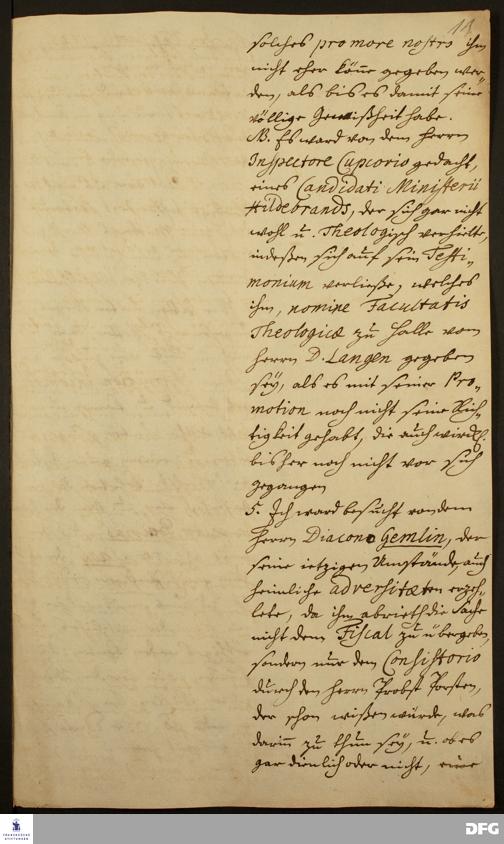 14
solches pro more nostro ihm
nicht eher könne gegeben wer-
den, als bis es damit seine
völlige Gewißheit habe.
NB. Es ward von dem Herrn
Inspectore Cuprorio gedacht,
eines Candidati Ministerii
Hildebrands, der sich gar nicht
wohl u. Theologisch verhielte,
indeßen sich auf sein Testi-
monium verließe, welches
ihm, nomine Facultatis
Theologicæ zu Halle vom
Herrn D. Langen gegeben
sey, als es mit seiner Pro-
motion noch nicht seine Rich-
tigkeit gehabt, die auch würckl.
bisher noch nicht vor sich
gegangen
5. Ich ward besucht von dem
Herrn Diacono Gemlin, der
seine ietzigen Umstände, auch
heimliche adversitæten erzeh-
lete, da ihm abrieth die Sache
nicht dem Fiscal zu übergeben,
sondern nur dem Consistorio
durch den Herrn Probst Porsten,
der schon wißen würde, was
darin zu thun sey, u. ob es
gar dienlich oder nicht, eine
FRANCKESCHE STIFTUNGEN
DFG